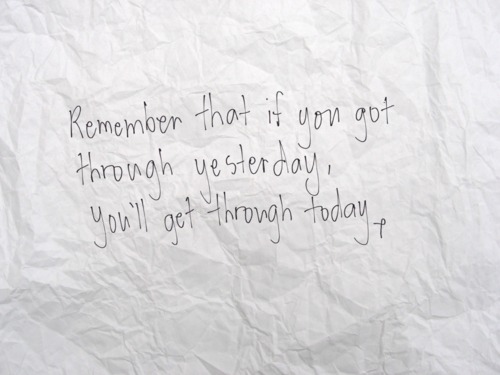 Remember that if you got
through yesterday,
you'll get through today